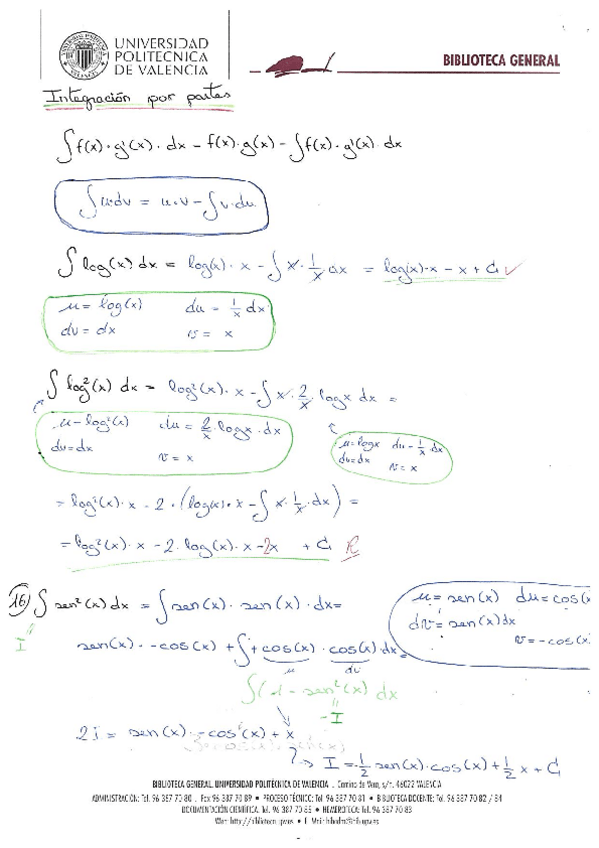 UNIVERSIDAD
POLITECNICA
DE VALENCIA
BIBLIOTECA GENERAL
Integración por partes
∫ f(x)·g'(x)· dx = f(x)·g(x) - ∫ f(x)·g'(x) dx
∫ u·dv = u·v - ∫ v·du
∫ log(x) dx = log(x)·x - ∫ x·1/x dx = log(x)·x - x + C
u = log(x) du = 1/x dx
dv = dx v = x
∫ log²(x) dx = log²(x)·x - ∫ x·2/x·logx dx =
u = log²(x) du = 2/x·logx·dx
dv = dx v = x
u = logx du = 1/x·dx
dv = dx v = x
= log²(x)·x - 2·(log(x)·x - ∫ x·1/x·dx) =
= log²(x)·x - 2·log(x)·x - 2x + C
16) ∫ sen²(x) dx = ∫ sen(x)·sen(x)·dx =
I
u = sen(x) du = cos(x
dv = sen(x)dx
v = -cos(x
sen(x)·-cos(x) + ∫ +cos(x)·cos(x) dx =
u dv
∫ (1 - sen²(x) dx
-I
2I = sen(x)·-cos(x) + x
→ I = 1/2 sen(x)·cos(x) + 1/2 x + C
BIBLIOTECA GENERAL. UNIVERSIDAD POLITÉCNICA DE VALENCIA . Camino de Vera, s/n. 46022 VALENCIA
ADMINISTRACIÓN: Tel. 96 387 70 80 . Fax 96 387 70 89 • PROCESO TÉCNICO: Tel. 96 387 70 81 • BIBLIOTECA DOCENTE: Tel. 96 387 70 82 / 84
DOCUMENTACIÓN CIENTÍFICA: Tel. 96 387 70 85 • HEMEROTECA: Tel. 96 387 70 83